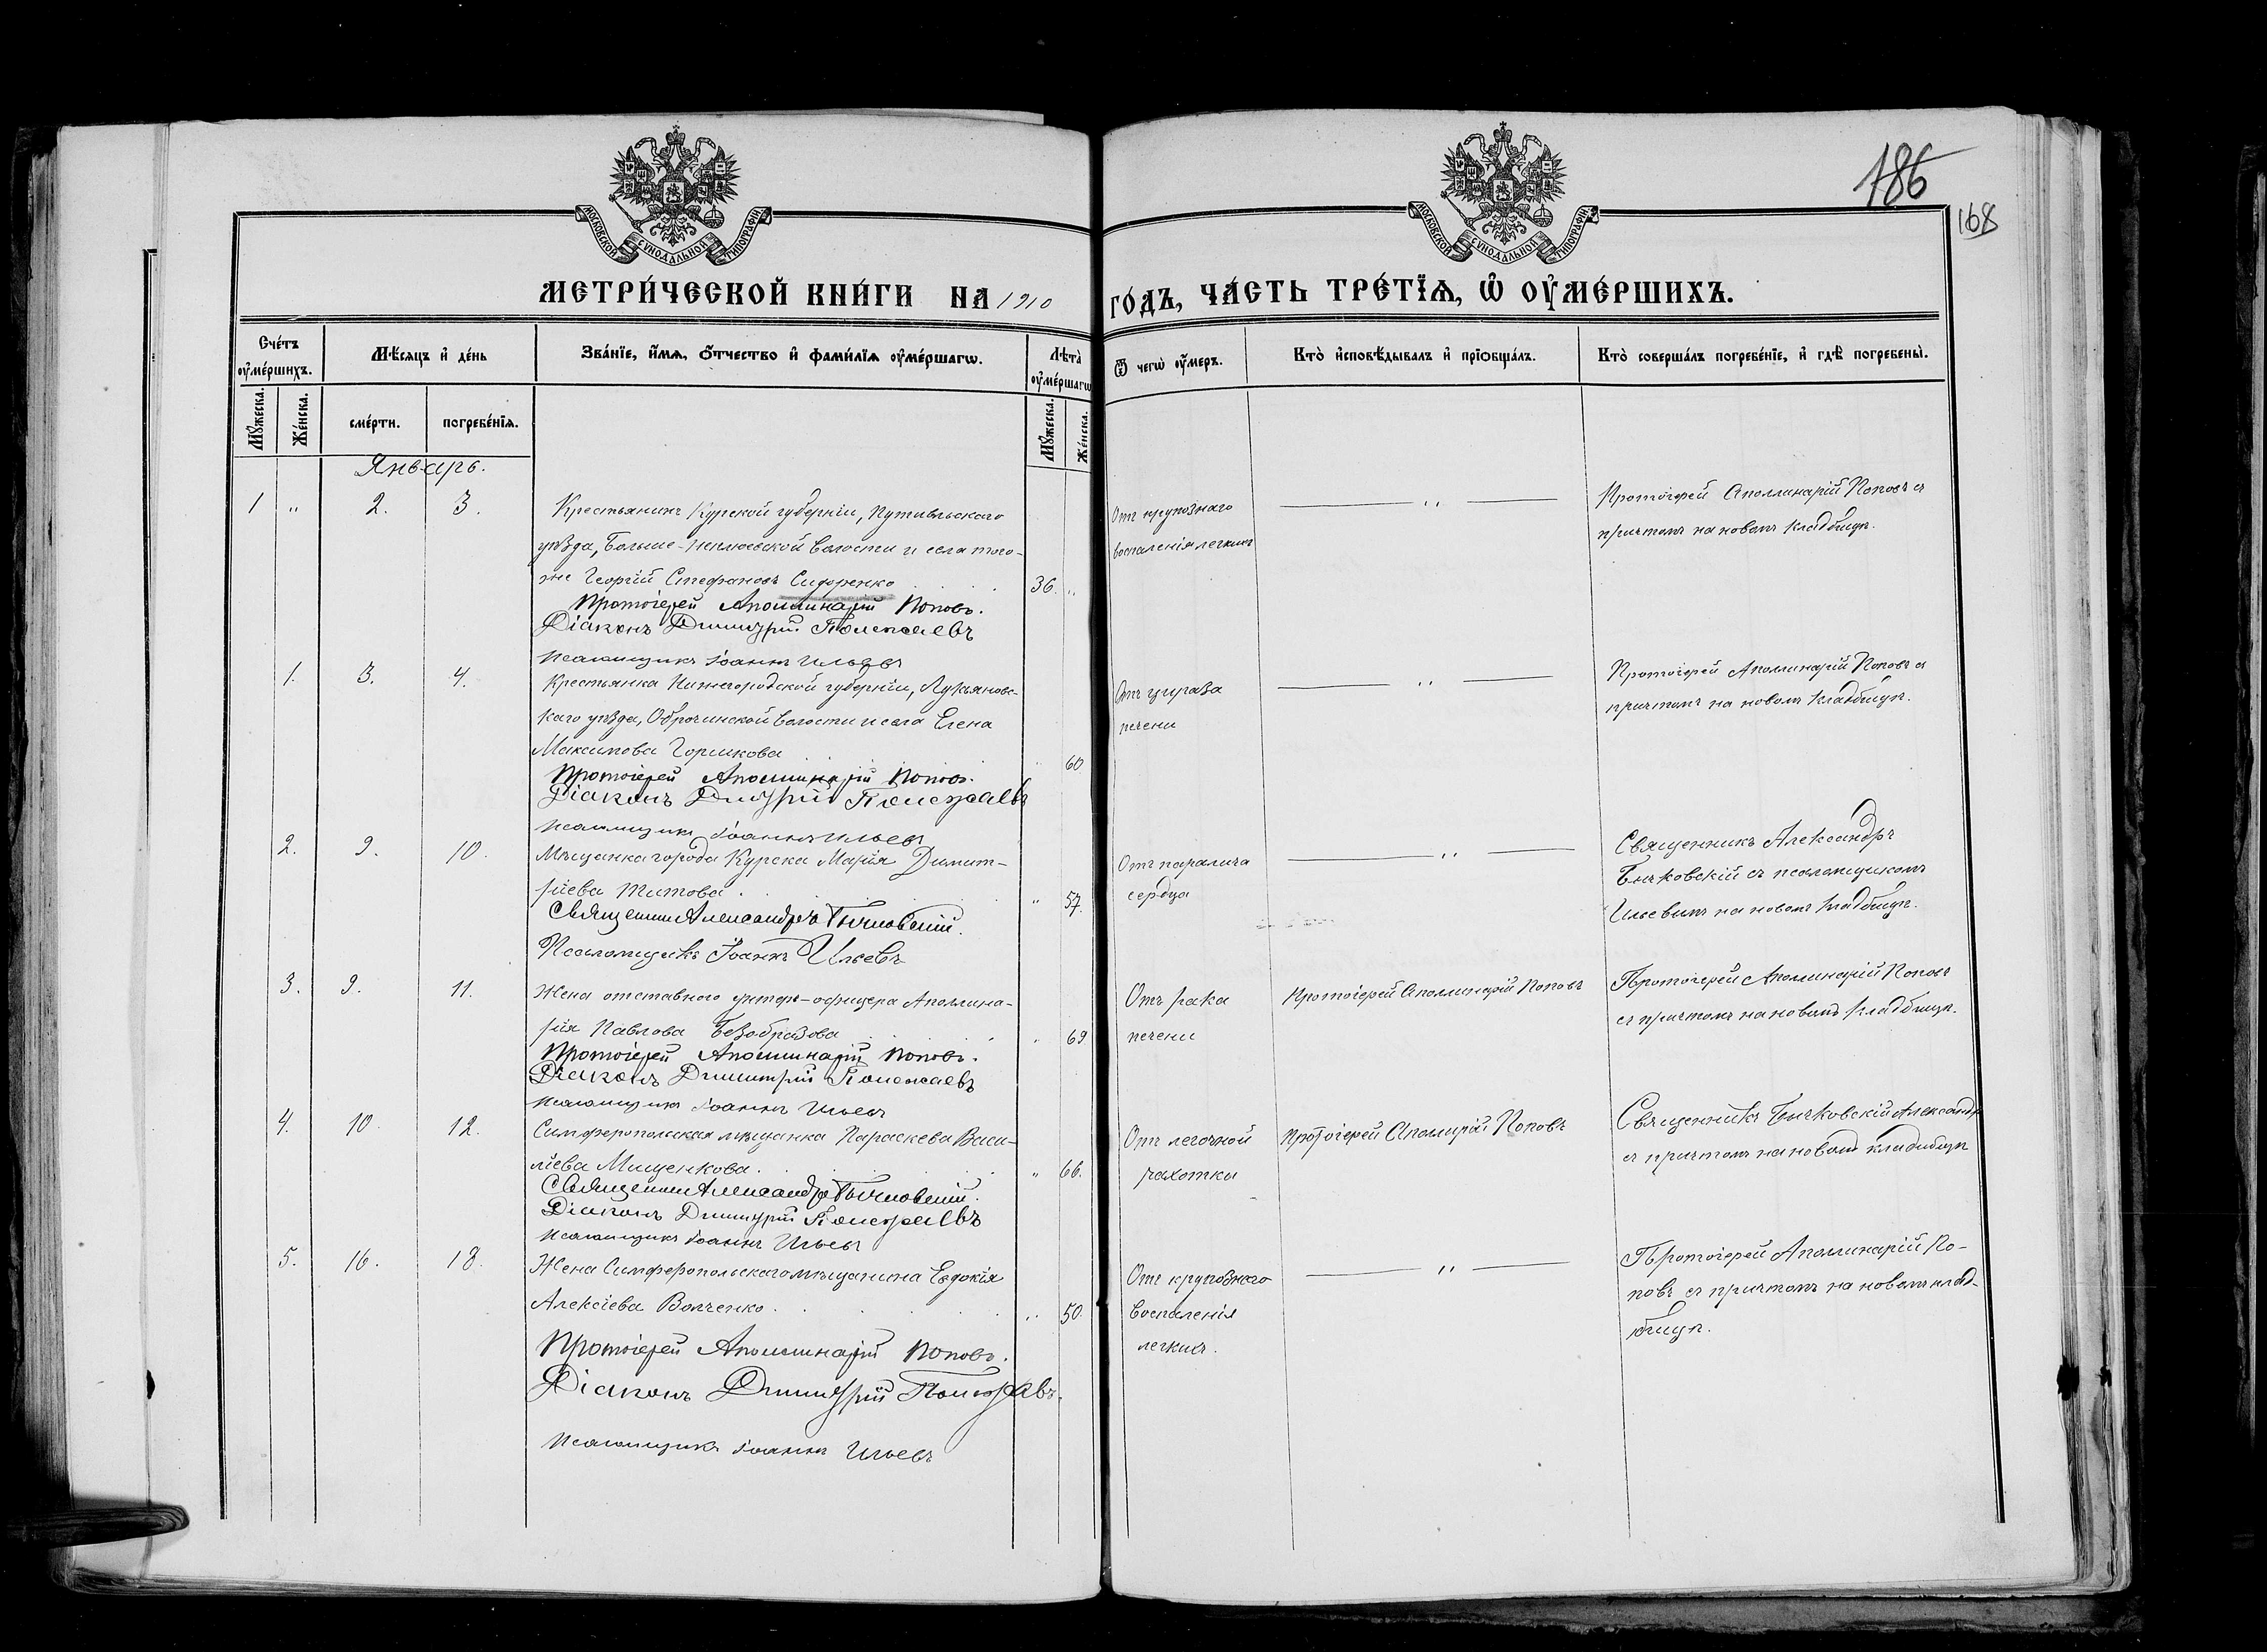 МОСКОВСКОЙ СУНОДАЛЬНОЙ ТИПОГРАФІИ
МОСКОВСКОЙ СУНОДАЛЬНОЙ ТИПОГРАФІИ
186
168
МЕТРИ́ЧЕСКОЙ КНИ́ГИ НА 1910 ГО́ДЪ, ЧА́СТЬ ТРЕ́ТЇѦ, Ѽ ОУ҆МЕ́РШИХЪ.
Сче́тъ оу҆ме́ршихъ.
Мѣ́сяцъ и҆ де́нь
Зва́нїе, и҆́мѧ, ѻ҆́тчество и҆ фами́лїѧ оу҆ме́ршагѡ.
Лѣта̀ оу҆ме́ршагѡ
Ѿ чегѡ̀ оу҆́меръ.
Кто̀ и҆сповѣ́дывалъ и҆ прїѻбща́лъ.
Кто̀ соверша́лъ погребе́нїе, и҆ гдѣ̀ погребены̀.
Мꙋ́жеска.
Же́нска.
сме́рти.
погребе́нїѧ.
Мꙋ́жеска.
Же́нска.
Январь.
1 " 2. 3.
Крестьянинъ Курской губерніи, Путивльскаго
уѣзда, Больше-Неплюевской волости и села того-
же Георгій Стефановъ Сидоренко
36. "
Протоіерей Аполлинарій Поповъ.
Діаконъ Димитрій Полежаевъ
Псаломщикъ Іоаннъ Ильевъ
Отъ крупознаго
воспаленія легкихъ
— " —
Протоіерей Аполлинарій Поповъ съ
причтомъ на новомъ кладбищѣ.
1. 3. 4.
Крестьянка Нижегородской губерніи, Лукьяновс-
каго уѣзда, Оброчинской волости и села Елена
Максимова Горшкова
60
Протоіерей Аполлинарій Поповъ.
Діаконъ Димитрій Полежаевъ
Псаломщикъ Іоаннъ Ильевъ
Отъ цираза
печени
— " —
Протоіерей Аполлинарій Поповъ съ
причтомъ на новомъ кладбищѣ.
2. 9. 10.
Мѣщанка города Курска Марія Димит-
ріева Титова
" 57.
Священникъ Александръ Бычковскій.
Псаломщикъ Іоаннъ Ильевъ
Отъ паралича
сердца
— " —
Священникъ Александръ
Бычковскій съ псаломщикомъ
Ильевымъ на новомъ кладбищѣ.
3. 9. 11.
Жена отставного унтеръ-офицера Аполлина-
рія Павлова Безобразова
" 69
Протоіерей Аполлинарій Поповъ.
Діаконъ Димитрій Полежаевъ
Псаломщикъ Іоаннъ Ильевъ
Отъ рака
печени
Протоіерей Аполлинарій Поповъ
Протоіерей Аполлинарій Поповъ
съ причтомъ на новомъ кладбищѣ.
4. 10. 12.
Симферопольская мѣщанка Параскева Васи-
ліева Мищенкова.
" 66.
Священникъ Александръ Бычковскій.
Діаконъ Димитрій Полежаевъ
Псаломщикъ Іоаннъ Ильевъ
Отъ легочной
чахотки
Протоіерей Поповъ
Священникъ Бычковскій Александръ
съ причтомъ на новомъ кладбищѣ
5. 16. 18.
Жена Симферопольскаго мѣщанина Евдокія
Алексіева Волченко
" 50.
Протоіерей Аполлинарій Поповъ.
Діаконъ Димитрій Полежаевъ.
Псаломщикъ Іоаннъ Ильевъ
Отъ крупознаго
воспаленія
легкихъ.
— " —
Протоіерей Аполлинарій По-
повъ съ причтомъ на новомъ клад-
бищѣ.